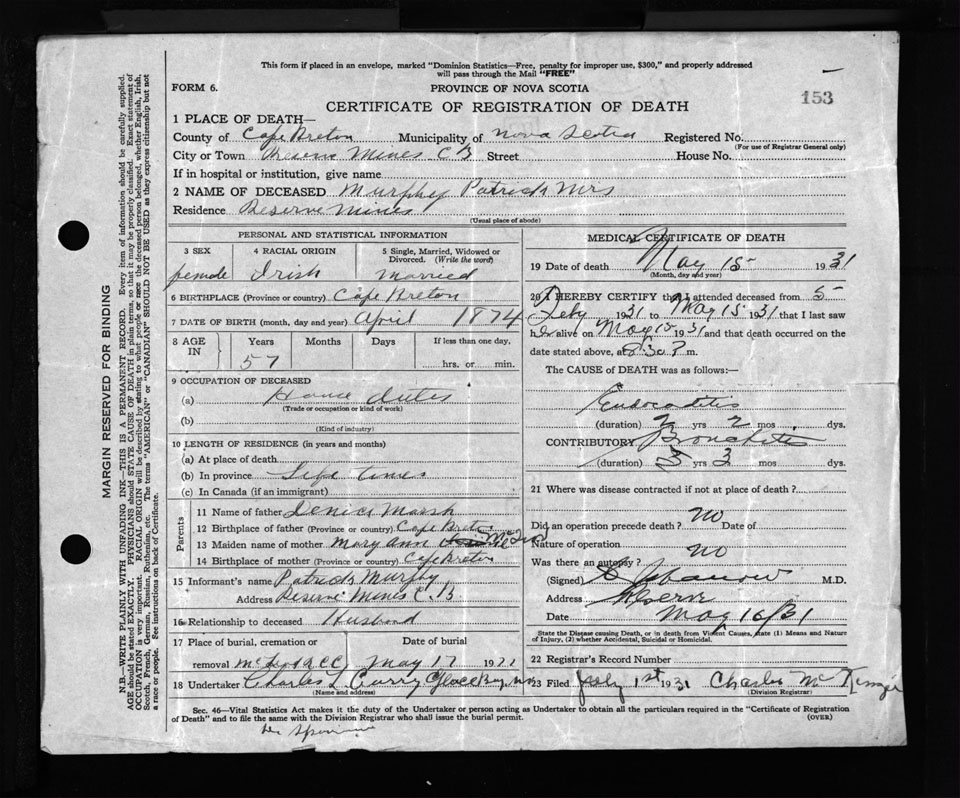 This form if placed in an envelope, marked "Dominion Statistics—Free, penalty for improper use, $300," and properly addressed
will pass through the Mail "FREE"
FORM 6.
PROVINCE OF NOVA SCOTIA
153
CERTIFICATE OF REGISTRATION OF DEATH
1 PLACE OF DEATH—
County of Cape Breton Municipality of Nova Scotia Registered No.
(For use of Registrar General only)
City or Town Reserve Mines C B Street House No.
If in hospital or institution, give name
2 NAME OF DECEASED Murphy Patrick Mrs
Residence Reserve Mines
(Usual place of abode)
PERSONAL AND STATISTICAL INFORMATION
3 SEX 4 RACIAL ORIGIN 5 Single, Married, Widowed or
Divorced. (Write the word)
female Irish Married
6 BIRTHPLACE (Province or country) Cape Breton
7 DATE OF BIRTH (month, day and year) April 1874
8 AGE IN Years Months Days If less than one day.
57 hrs. or min.
9 OCCUPATION OF DECEASED
(a) House Duties
(Trade or occupation or kind of work)
(b)
(Kind of industry)
10 LENGTH OF RESIDENCE (in years and months)
(a) At place of death
(b) In province Life times
(c) In Canada (if an immigrant)
Parents
11 Name of father Denics Marsh
12 Birthplace of father (Province or country) Cape Breton
13 Maiden name of mother Mary Ann
14 Birthplace of mother (Province or country) Cape Breton
15 Informant's name Patrick Murphy
Address Reserve Mines C. B
16 Relationship to deceased Husband
17 Place of burial, cremation or Date of burial
removal May 17 19
18 Undertaker Charles Curry Glace Bay, NS
(Name and address)
MEDICAL CERTIFICATE OF DEATH
19 Date of death May 15 1931
(Month, day and year)
20 I HEREBY CERTIFY that I attended deceased from 5
Feby 1931 to May 15 1931 that I last saw
her alive on May 15 1931 and that death occurred on the
date stated above, at 830 P m.
The CAUSE of DEATH was as follows:—
Endocarditis
(duration) 2 yrs 2 mos dys.
CONTRIBUTORY Bronchitis
(duration) 3 yrs 3 mos dys.
21 Where was disease contracted if not at place of death?
Did an operation precede death? NO Date of
Nature of operation
Was there an autopsy? NO
(Signed) M.D.
Address Reserve
Date May 16/31
State the Disease causing Death, or in death from Violent Causes, state (1) Means and Nature
of Injury, (2) whether Accidental, Suicidal or Homicidal.
22 Registrar's Record Number
23 Filed July 1st 1931 Charles
(Division Registrar)
Sec. 46—Vital Statistics Act makes it the duty of the Undertaker or person acting as Undertaker to obtain all the particulars required in the "Certificate of Registration
of Death" and to file the same with the Division Registrar who shall issue the burial permit.
(OVER)
MARGIN RESERVED FOR BINDING
N.B.—WRITE PLAINLY WITH UNFADING INK—THIS IS A PERMANENT RECORD. Every item of information should be carefully supplied.
AGE should be stated EXACTLY. PHYSICIANS should STATE CAUSE OF DEATH in plain terms, so that it may be properly classified. Exact statement of
OCCUPATION is very important. RACIAL ORIGIN will be described by stating to what people or race the deceased person belonged, whether English, Irish,
Scotch, French, German, Russian, Ruthenian, etc. The terms "AMERICAN" or "CANADIAN" SHOULD NOT BE USED as they express citizenship but not
a race or people. See instructions on back of Certificate.